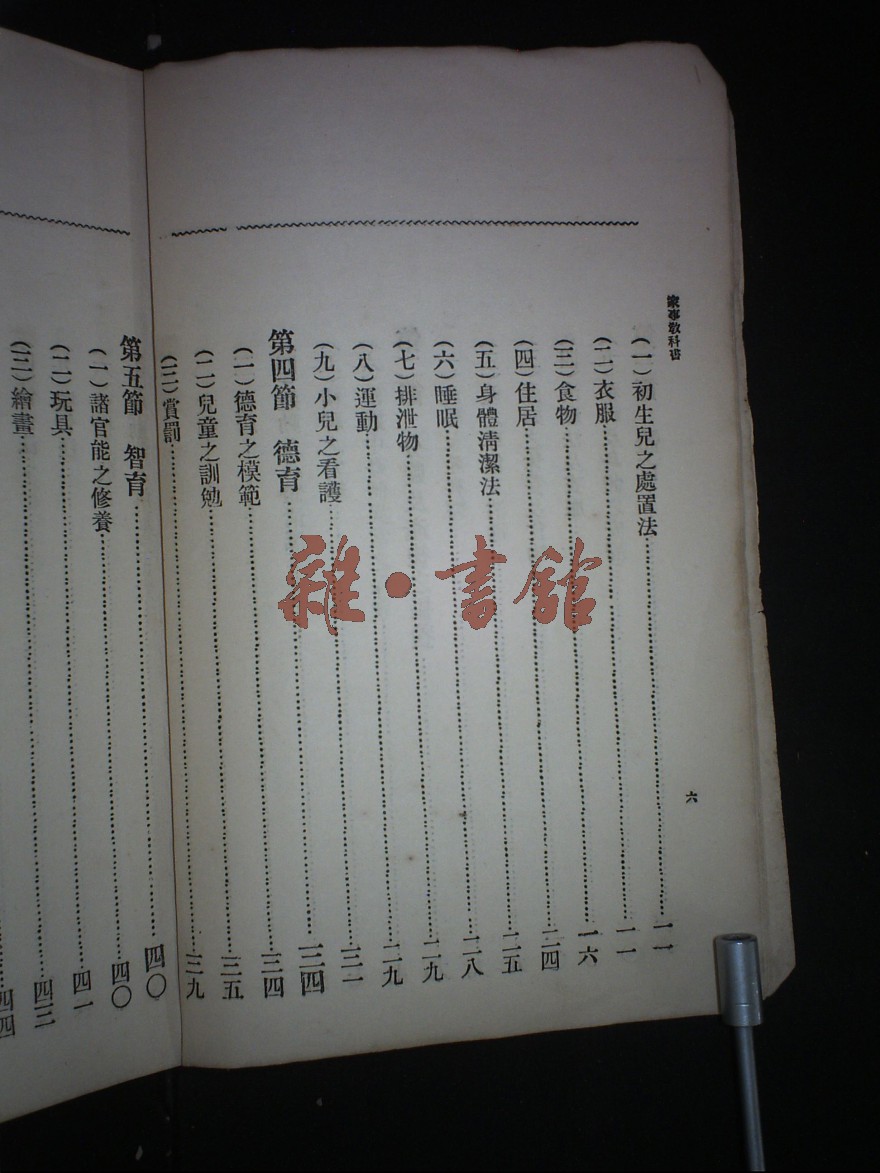 家事敎科書
(一)初生兒之處置法 一一
(二)衣服 一一
(三)食物 一六
(四)住居 二四
(五)身體淸潔法 二五
(六)睡眠 二八
(七)排泄物 二九
(八)運動 二九
(九)小兒之看護 三一
第四節 德育 三四
(一)德育之模範 三四
(二)兒童之訓勉 三五
(三)賞罰 三九
六
第五節 智育 四〇
(一)諸官能之修養 四〇
(二)玩具 四一
(三)繪畫 四三
四四
雜·書館